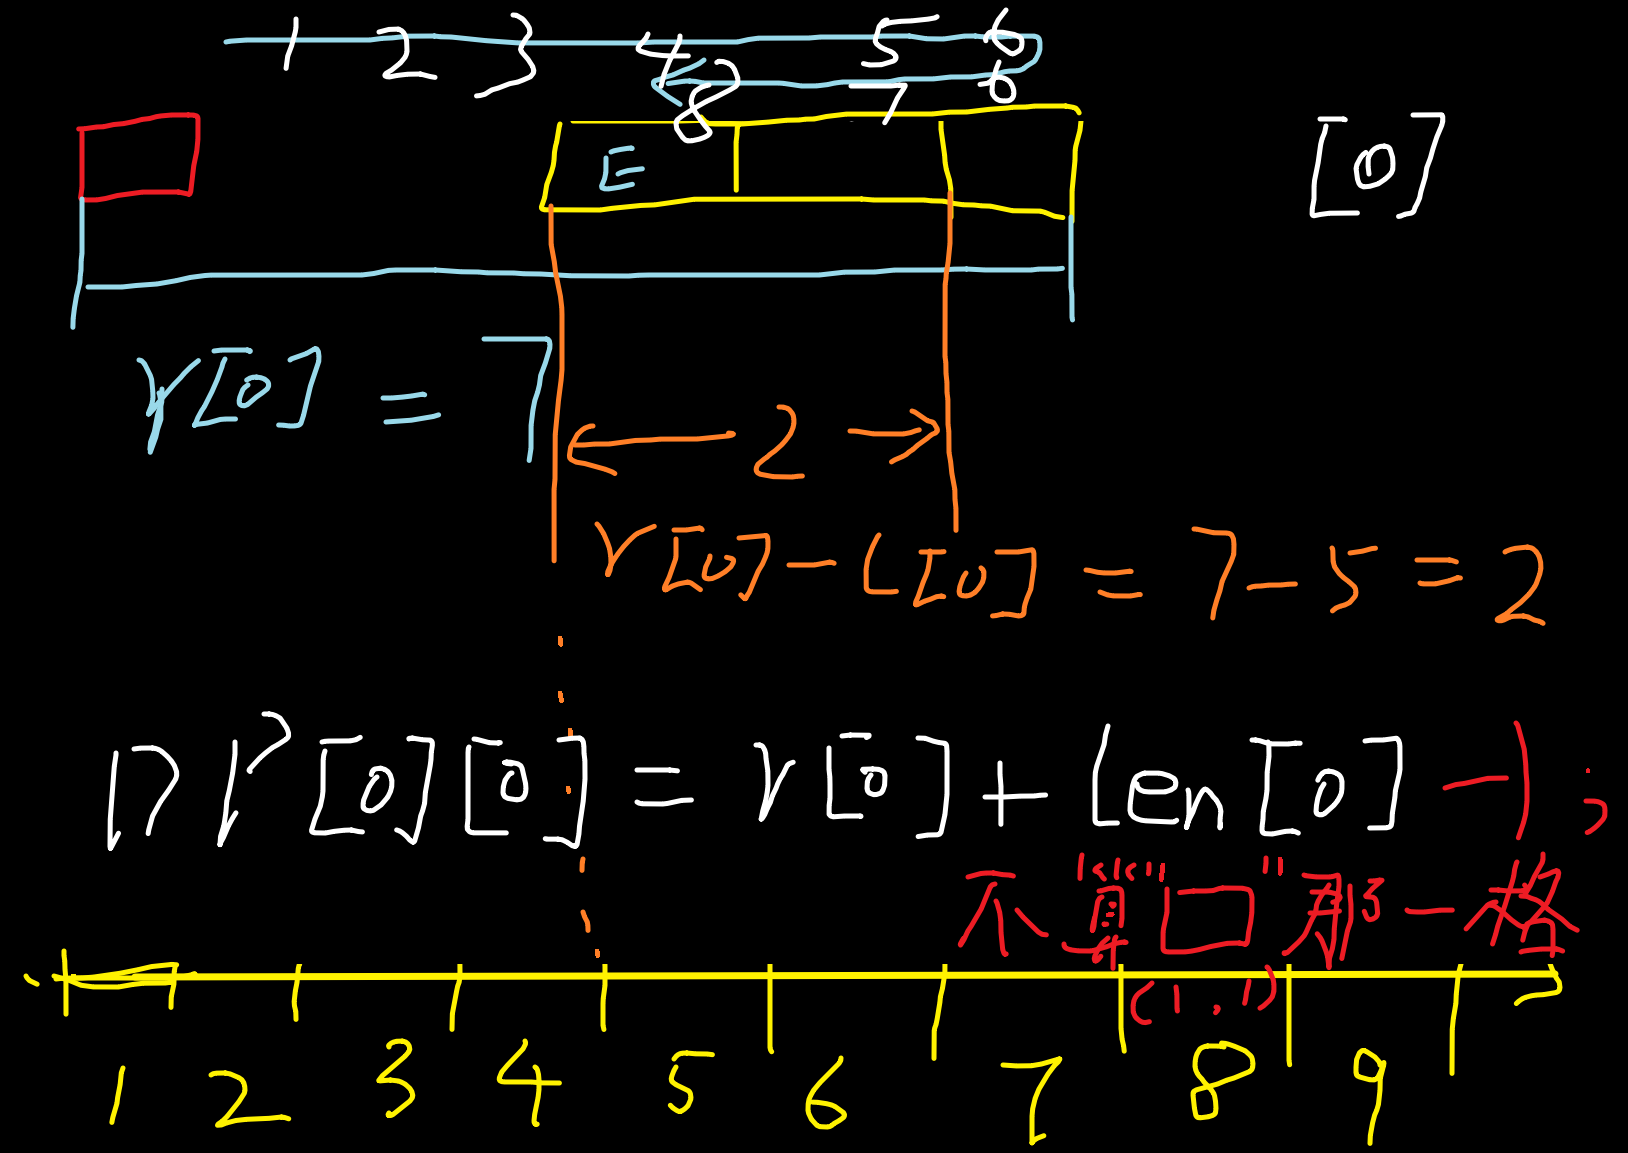 1 2 3 4 5 6
8 7 6
E
[0]
r[0] = 7
2
r[0] - l[0] = 7 - 5 = 2
DP[0][0] = r[0] + len[0] - 1;
不算"口"那一格
(1,1)
1 2 3 4 5 6 7 8 9